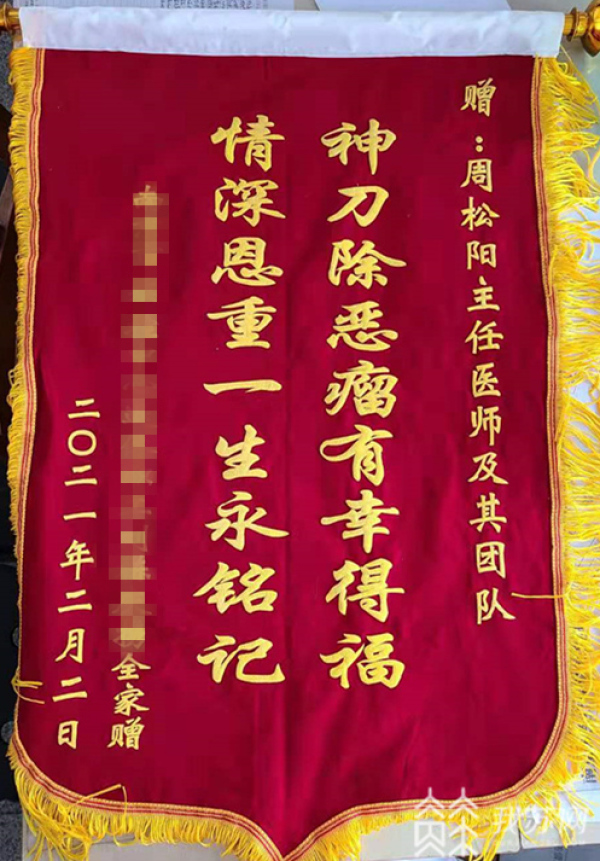 赠：周松阳主任医师及其团队
神刀除恶瘤有幸得福
情深恩重一生永铭记
全家赠
二〇二一年二月二日